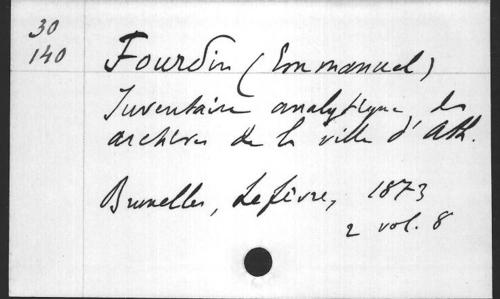 30
140
Fourdin (Emmanuel)
Inventaire analytique des
archives de la ville d'Ath.
Bruxelles, Lefèvre, 1873
2 vol. 8